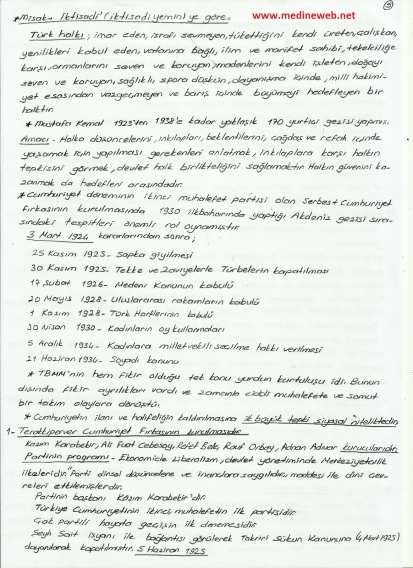 www.medineweb.net
*Misak-ı İktisadi'(iktisadi yemin)ye göre:
Türk halkı; imar eden, israfı sevmeyen, tükettiğini kendi üreten, çalışkan,
yenilikleri kabul eden, vatanına bağlı, ilim ve marifet sahibi, tekelciliğe
karşı, ormanlarını seven ve koruyan, madenlerini kendi işleten, doğayı
seven ve koruyan, sağlıklı, spora düşkün, dayanışma içinde, milli hakimi-
yet esasından vazgeçmeyen ve barış içinde büyümeyi hedefleyen bir
halktır.
* Mustafa Kemal 1923'ten 1938'e kadar yaklaşık 170 yurtiçi gezisi yapmış.
Amacı - Halka düşüncelerini, inkılapları, beklentilerini, çağdaş ve refah içinde
yaşamak için yapılması gerekenleri anlatmak, inkılaplara karşı halkın
tepkisini görmek, devlet halk birlikteliğini sağlamaktır. Halkın güvenini ka-
zanmak da hedefleri arasındadır.
* Cumhuriyet döneminin ikinci muhalefet partisi olan Serbest Cumhuriyet
Fırkasının kurulmasında 1930 ilkbaharında yaptığı Akdeniz gezisi sıra-
sındaki tespitleri önemli rol oynamıştır.
3 Mart 1924 kararlarından sonra;
25 Kasım 1925- Şapka giyilmesi
30 Kasım 1925- Tekke ve Zaviyelerle Türbelerin kapatılması
17 Şubat 1926- Medeni Kanunun kabulü
20 Mayıs 1928- Uluslararası rakamların kabulü
1 Kasım 1928- Türk Harflerinin kabulü
30 Nisan 1930- Kadınların oy kullanmaları
5 Aralık 1934- Kadınlara milletvekili seçilme hakkı verilmesi
21 Haziran 1934- Soyadı kanunu
* TBMM'nin hem fikir olduğu tek konu yurdun kurtuluşu idi. Bunun
dışında fikir ayrılıkları vardı ve zamanla ciddi muhalefete ve somut
bir takım olaylara dönüştü.
* Cumhuriyetin ilanı ve halifeliğin kaldırılmasına ilk büyük tepki siyasal niteliktedir.
1- Terakkiperver Cumhuriyet Fırkasının kurulmasıdır.
Kazım Karabekir, Ali Fuat Cebesoy, Refet Bele, Rauf Orbay, Adnan Adıvar kurucularıdır.
Partinin programı - Ekonomide Liberalizm, devlet yönetiminde Merkeziyetçilik
ilkeleridir. Parti dinsel düşüncelere ve inançlara saygılıdır maddesi ile dini çev-
releri etkilemişlerdir.
Partinin başkanı Kâzım Karabekir'dir.
Türkiye Cumhuriyetinin ikinci, muhalefetin ilk partisidir.
Çok partili hayata geçişin ilk denemesidir.
Şeyh Sait isyanı ile bağlantısı görülerek Takriri Sükun Kanununa (4 Mart 1925)
dayanılarak kapatılmıştır. 5 Haziran 1925